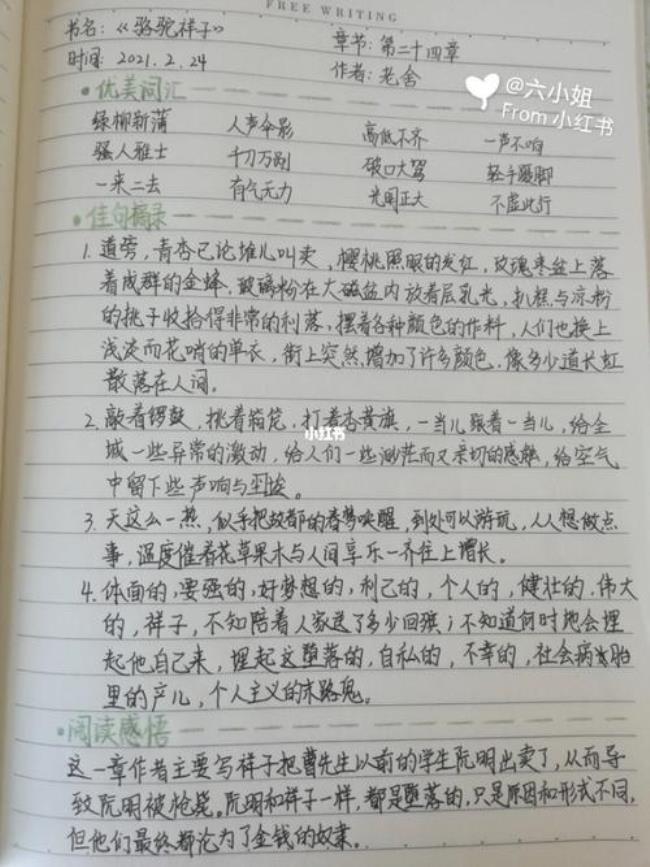 FREE WRITING
书名:《骆驼祥子》 章节:第二十四章
时间:2021.2.24 作者:老舍
@六小姐
From 小红书
优美词汇
绿柳新蒲 人声伞影 高低不齐 一声不响
骚人雅士 千刀万剐 破口大骂 轻手蹑脚
一来二去 有气无力 光明正大 不虚此行
佳句摘录
1. 道旁,青杏已论堆儿叫卖,樱桃照眼的发红,玫瑰枣盆上落
着成群的金蜂,玻璃粉在大磁盆内放着层乳光,扒糕与凉粉
的挑子收拾得非常的利落,摆着各种颜色的作料,人们也换上
浅淡而花哨的单衣,街上突然增加了许多颜色,像多少道长虹
散落在人间。
2. 敲着锣鼓,挑着箱笼,打着杏黄旗,一当儿跟着一当儿,给全
城一些异常的激动,给人们一些渺茫而又亲切的感触,给空气
小红书
中留下些声响与尘埃。
3. 天这么一热,似乎把故都的春梦唤醒,到处可以游玩,人人想做点
事,温度催着花草果木与人间享乐一齐往上增长。
4. 体面的,要强的,好梦想的,利己的,个人的,健壮的,伟大
的,祥子,不知陪着人家送了多少回殡;不知道何时何地会埋
起他自己来,埋起这堕落的,自私的,不幸的,社会病胎
里的产儿,个人主义的末路鬼。
阅读感悟
这一章作者主要写祥子把曹先生以前的学生阮明出卖了,从而导
致阮明被枪毙。阮明和祥子一样,都是堕落的,只是原因和形式不同,
但他们最终都沦为了金钱的奴隶。